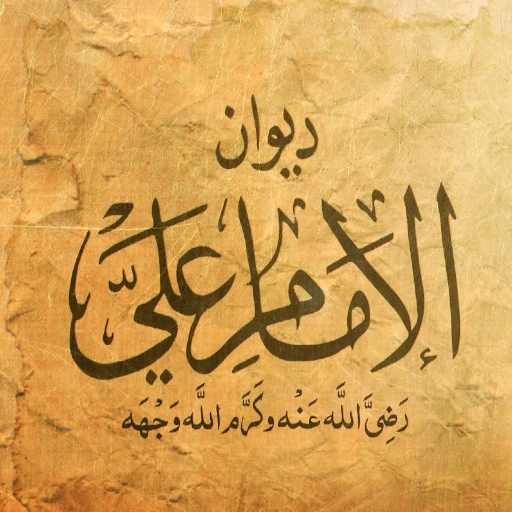 ديوان
الإمام علي
رَضِيَّ اللَّه عَنْه وكَرَّم اللَّه وَجْهَه